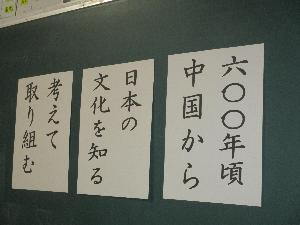 六〇〇年頃
中国から
日本の
文化を知る
考えて
取り組む